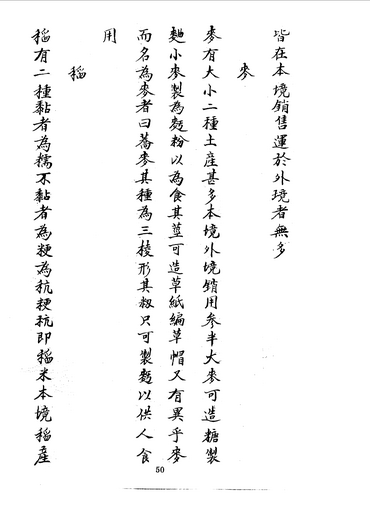 皆在本境銷售運於外境者無多
麥
麥有大小二種土産甚多本境外境銷用參半大麥可造糖製
麯小麥製為麪粉以為食其莖可造草紙編草帽又有異乎麥
而名為麥者曰蕎麥其種為三棱形其籾只可製麪以供人食
用
稻
稻有二種黏者為糯不黏者為粳為秔粳秔即稻米本境稻産
50